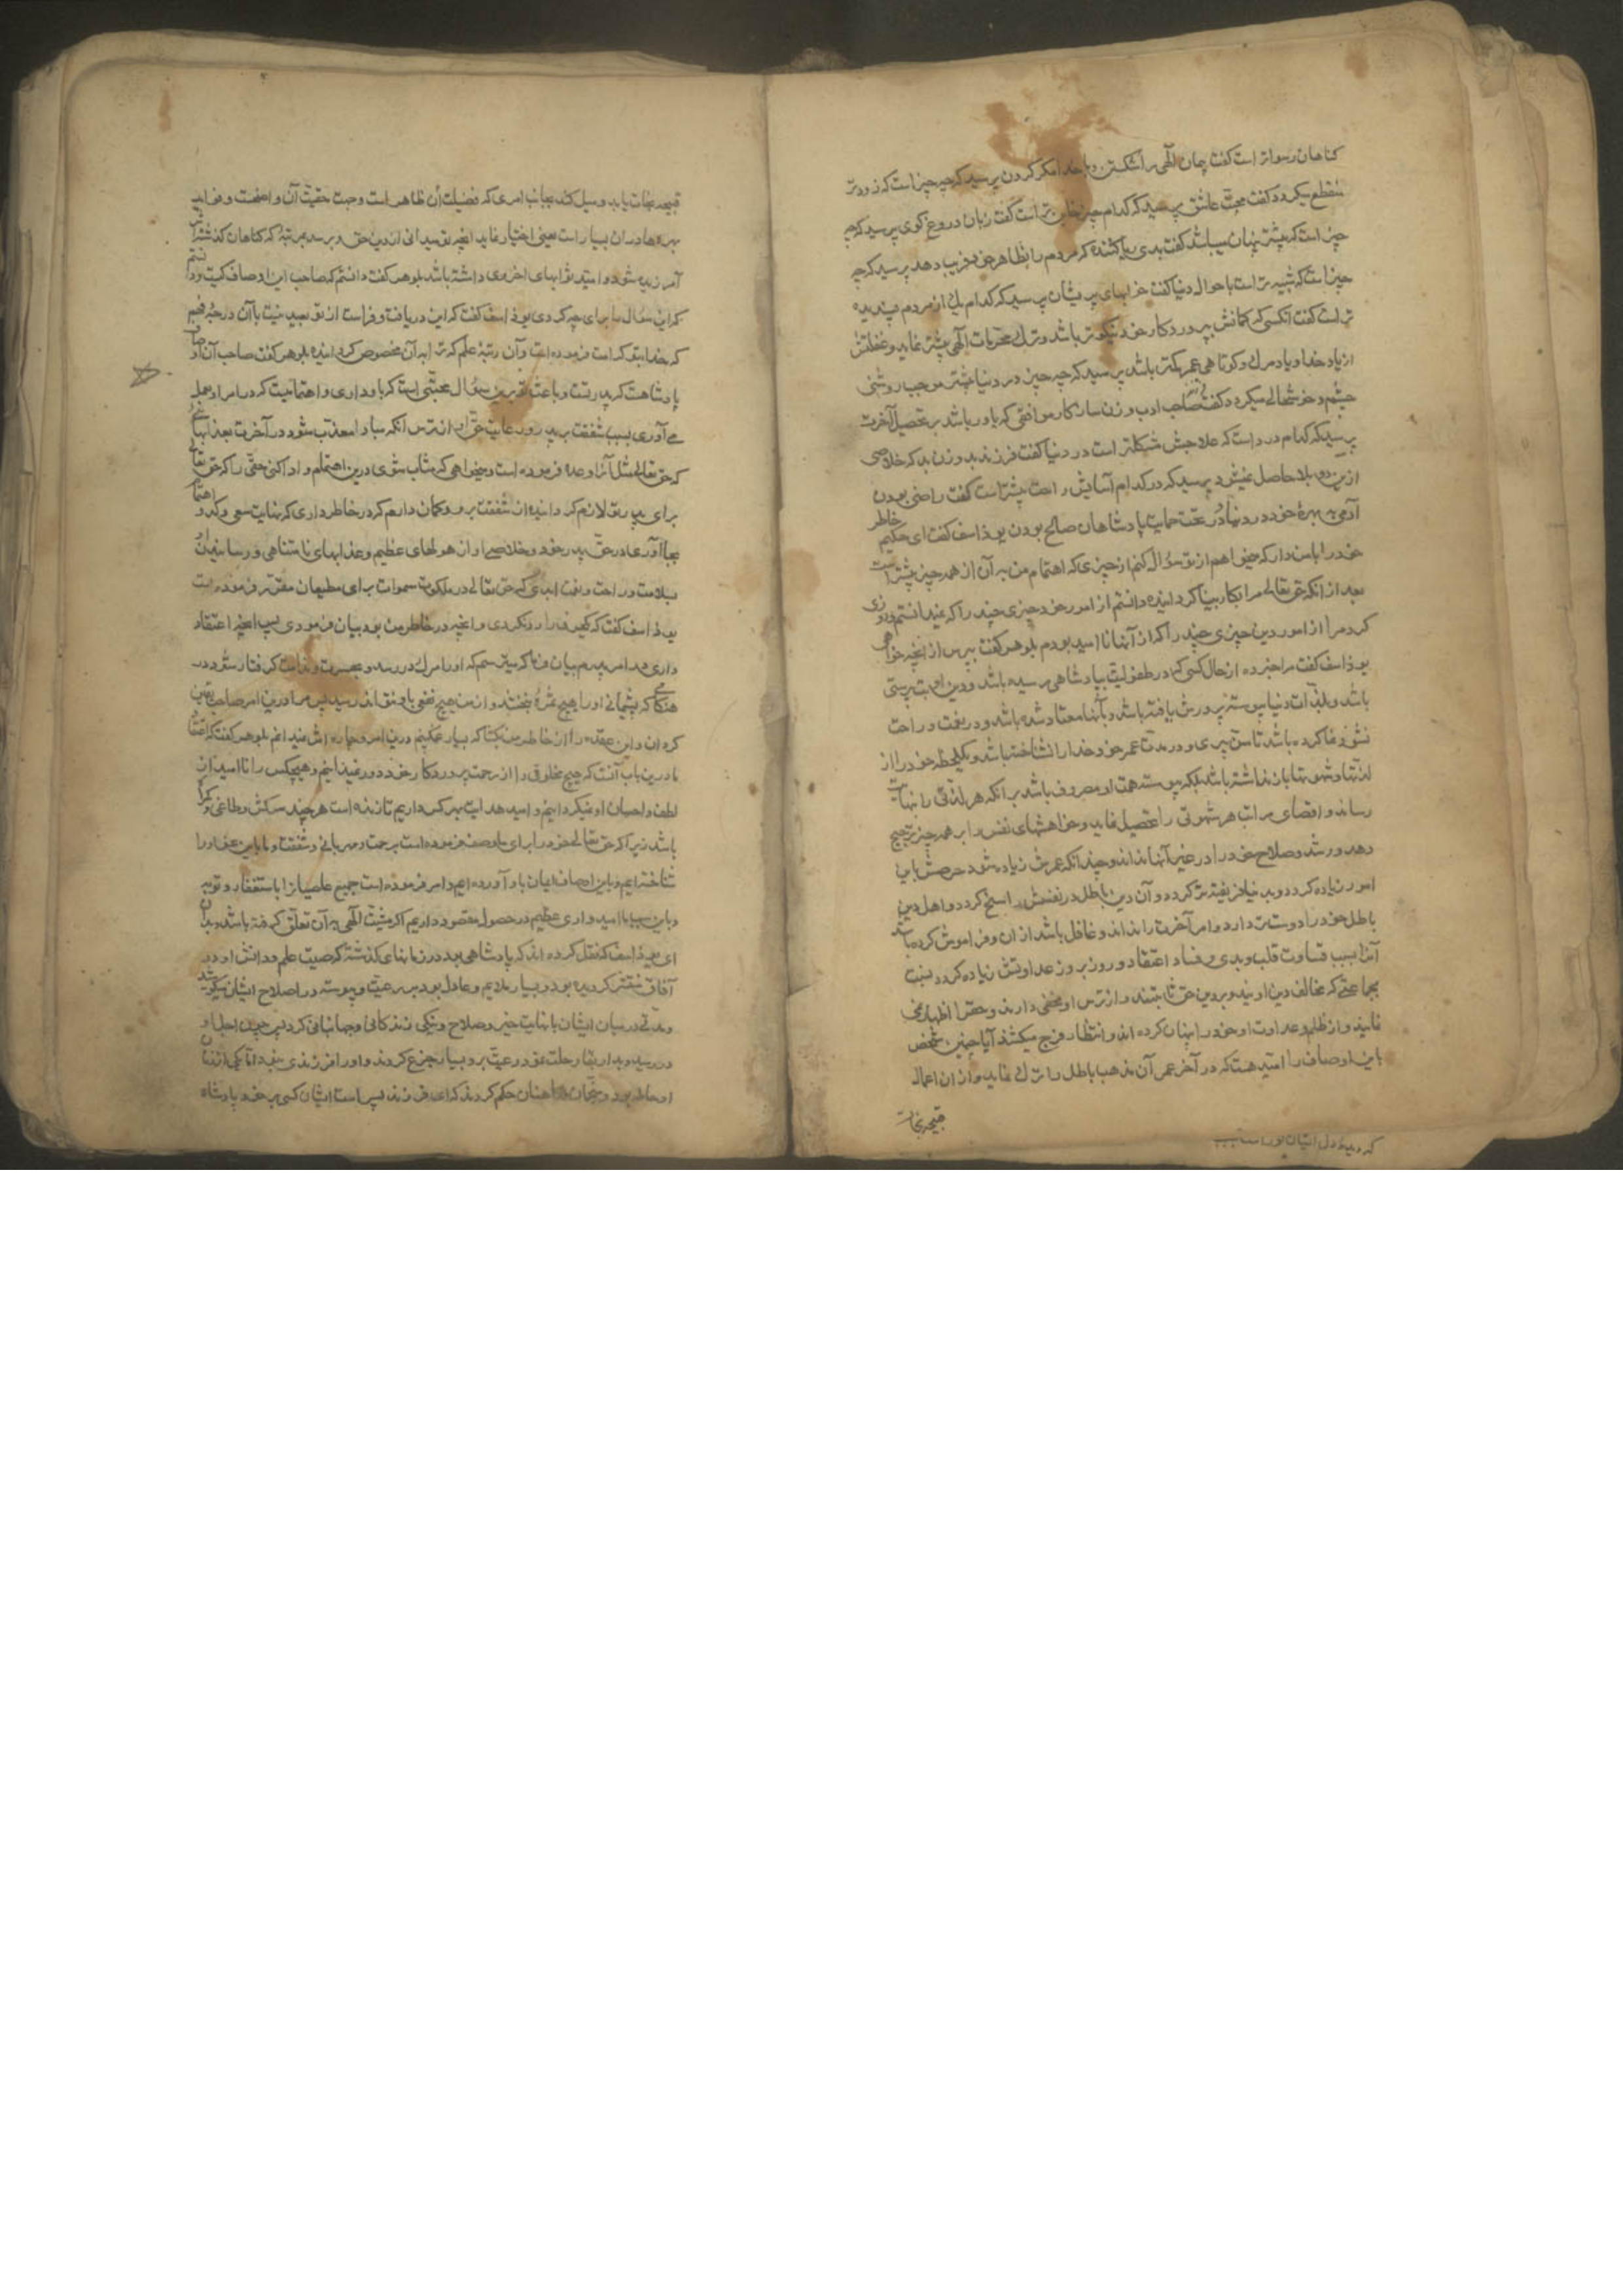 کناهان رسواتر است کفت پیمان الهی را شکستن و با خدا مکر کردن پرسید که چه چیز است که زودتر
منقطع میکردد کفت محبت عاشق پرسید که کدام چیز خاین تر است کفت زبان دروغ کوی پرسید که چه
چیز است که بیشتر پنهان میباشد کفت بدی ریا کننده که مردم را بظاهر خود فریب دهد پرسید که چه
چیز است که شبیه تر است باحوال دنیا کفت خوابهای پریشان پرسید که کدام یک از مردم پسندیده
تر است کفت انکسی که کمانش بپروردکار خود نیکوتر باشد و ترک محرمات الهی بیشتر نماید و غفلتش
از یاد خدا و یاد مرک و کوتاهی عمر کمتر باشد پرسید که چه چیز در دنیا بیشتر موجب روشنی
چشم و خوشحالی میکردد کفت صاحب ادب و زن سازکار موافقی که یاور باشد بر تحصیل آخرت
پرسید که کدام درد است که علاجش مشکلتر است در دنیا کفت فرزند بد و زن بد که خلاصی
ازین دو بلا حاصل نمیشود پرسید که در کدام آسایش راحت بیشتر است کفت راضی بودن
آدمی به بهرهٔ خود در دنیا و در تحت حمایت پادشاهان صالح بودن یوذاسف کفت ای حکیم خاطر
خود را با من دار که میخواهم از تو سؤال کنم از چیزی که اهتمام من به آن از همه چیز بیشتر است
بعد از انکه حق تعالی مرا بکار بینا کردانیده دانستم از امور خود چیزی چند را که نمیدانستم و روزی
کرد مرا از امور دین چیزی چند را که از آنها نا امید بودم بلوهر کفت بپرس از انچه خواهی
یوذاسف کفت مرا خبر ده از حال کسی که در طفولیت بپادشاهی رسیده باشد و دین او بت پرستی
باشد و بلذات دنیا پیوسته پرورش یافته باشد و بآنها معتاد شده باشد و در نعمت و راحت
نشو و نما کرده باشد تا سن پیری و در مدت عمر خود خدا را نشناخته باشد و یکلحظه خود را از
لذتها و شهوتها باز نداشته باشد بلکه پیوسته همت او مصروف باشد بر انکه هر لذتی را بنهایت
رساند و اقصای مراتب هر شهوتی را تحصیل نماید و خواهشهای نفس را بر همه چیز ترجیح
دهد و رشد و صلاح خود را در غیر آنها نداند و چندانکه عمرش زیاده شود حرصش باین
امور زیاده کردد و بدنیا فریفته تر کردد و آن دین باطل در نفسش راسخ کردد و اهل دین
باطل خود را دوست تر دارد و امر آخرت را نداند و غافل باشد از ان و فراموش کرده باشد
آنرا بسبب قساوت قلب و بدی و فساد اعتقاد و روز بروز عداوتش زیاده کردد نسبت
بجماعتی که مخالف دین اویند و بر دین حق ثابتند و از ترس او مخفی دارند و حق را اظهار نمی
نمایند و از ظلم و عداوت او خود را پنهان کرده اند و انتظار فرج میکشند آیا چنین شخص
با این اوصاف را امید هست که در آخر عمر آن مذهب باطل را ترک نماید و از ان اعمال
قبیحه نجات
قبیحه نجات یابد و میل کند بجانب امری که فضیلت آن ظاهر است و حجت حقیت آن واضحست و فواید
بهره ها در ان بسیار است یعنی اختیار نماید انچه تو میدانی از دین حق و برسد بمرتبه که کناهان کذشته اش
آمرزیده شود و امید ثوابهای اخروی داشته باشد بلوهر کفت دانستم که صاحب این اوصاف کیست و دانستم
که این سؤال را برای چه کردی یوذاسف کفت که این دریافت و فراست از تو بعید نیست با آن درجهٔ فهم
که خدا بتو کرامت فرموده است و آن رتبهٔ علم که ترا به آن مخصوص کردانیده بلوهر کفت صاحب آن اوصاف
پادشاهست که پدر تست و باعث تو برین سؤال محبتی است که باو داری و اهتمامیست که در امر او بعمل
می آوری بسبب شفقت بر پدر و رعایت حق او از ترس انکه مبادا معذب شود در آخرت بعذابهائی
که حق تعالی مثل آنرا وعده فرموده است و میخواهی که مثاب شوی درین اهتمام و ادا کنی حقی را که حق تعالی
برای پدر بر تو لازم کردانیده از شفقت بر او و کمان دارم که در خاطر داری که نهایت سعی و کد و اهتمام
بجا آوری در حق پدر خود و خلاصی او از هولهای عظیم و عذابهای نامتناهی و رسانیدن او
بسلامت و راحت و نعمت ابدی که حق تعالی در ملکوت سموات برای مطیعان مقرر فرموده است
یوذاسف کفت که یک حرف را رد نکردی و انچه در خاطر من بود بیان فرمودی پس انچه اعتقاد
داری در امر پدرم بیان فرما که میترسم که او را مرک در رسد و بحسرت و ندامت کرفتار شود در
هنکامی که پشیمانی او را هیچ ثمرهٔ نبخشد و از من هیچ نفعی باو نتواند رسید پس مرا درین امر صاحب یقین
کردان و این عقده را از خاطر من بکشا که بسیار غمکینم درین امر و چاره اش نمیدانم بلوهر کفت که اعتقاد
ما درین باب آنست که هیچ مخلوق را از رحمت پروردکار خود دور نمیدانیم و هیچکس را نا امید از
لطف و احسان او نمیکردانیم و امید هدایت بهر کس داریم تا زنده است هر چند سرکش و طاغی و کمراه
باشد زیرا که حق تعالی خود را برای ما وصف فرموده است برحمت و مهربانی و شفقت و ما باین نحو او را
شناخته ایم و باین اوصاف ایمان باو آورده ایم و امر فرموده است جمیع عاصیانرا باستغفار و توبه
و باین سبب ما امیدواری عظیم در حصول مقصود داریم اکر مشیت الهی به آن تعلق کرفته باشد بدان
ای یوذاسف که نقل کرده اند که پادشاهی بود در زمانهای کذشته که صیت علم و دانش او در
آفاق منتشر کردیده بود و بسیار ملایم و عادل بود بر رعیت و پیوسته در اصلاح ایشان میکوشید
و مدتی در میان ایشان با نهایت خیر و صلاح و نیکی زندکانی و جهانبانی کرد پس چون اجل او
در رسید و بدار بقا رحلت نمود رعیت برو بسیار جزع کردند و او را فرزندی نبود اما یکی از زنان
او حامله بود و منجمان و کاهنان حکم کردند که این فرزند پسر است ایشان کسی بر خود پادشاه
که دیدهٔ دل ایشان